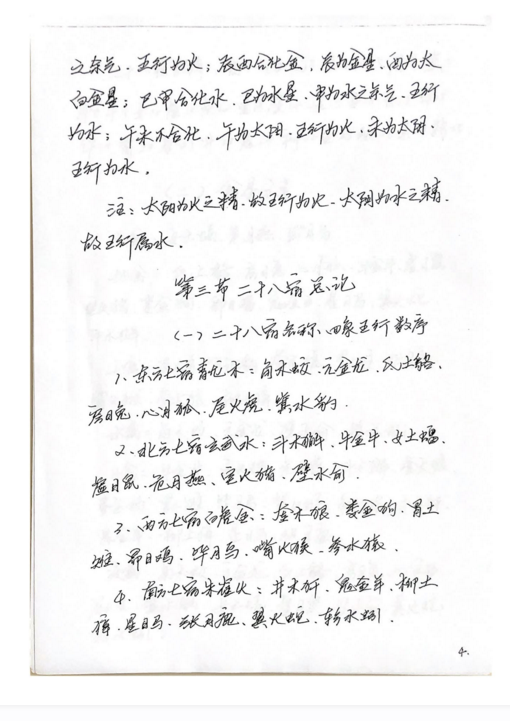 之余气、五行为火；辰酉合化金，辰为金星、酉为太
白金星；巳申合化水，巳为水星，申为水之余气、五行
为水；午未不合化，午为太阳、五行为火，未为太阴、
五行为水。
注：太阳为火之精，故五行为火、太阴为水之精，
故五行属水。
第三节 二十八宿总论
（一）二十八宿名称、四象五行数序
1、东方七宿青龙木：角木蛟、亢金龙、氐土貉、
房日兔、心月狐、尾火虎、箕水豹。
2、北方七宿玄武水：斗木獬、牛金牛、女土蝠、
虚日鼠、危月燕、室火猪、壁水俞。
3、西方七宿白虎金：奎木狼、娄金狗、胃土
雉、昴日鸡、毕月乌、嘴火猴、参水猿。
4、南方七宿朱雀火：井木犴、鬼金羊、柳土
獐、星日马、张月鹿、翼火蛇、轸水蚓。
4.